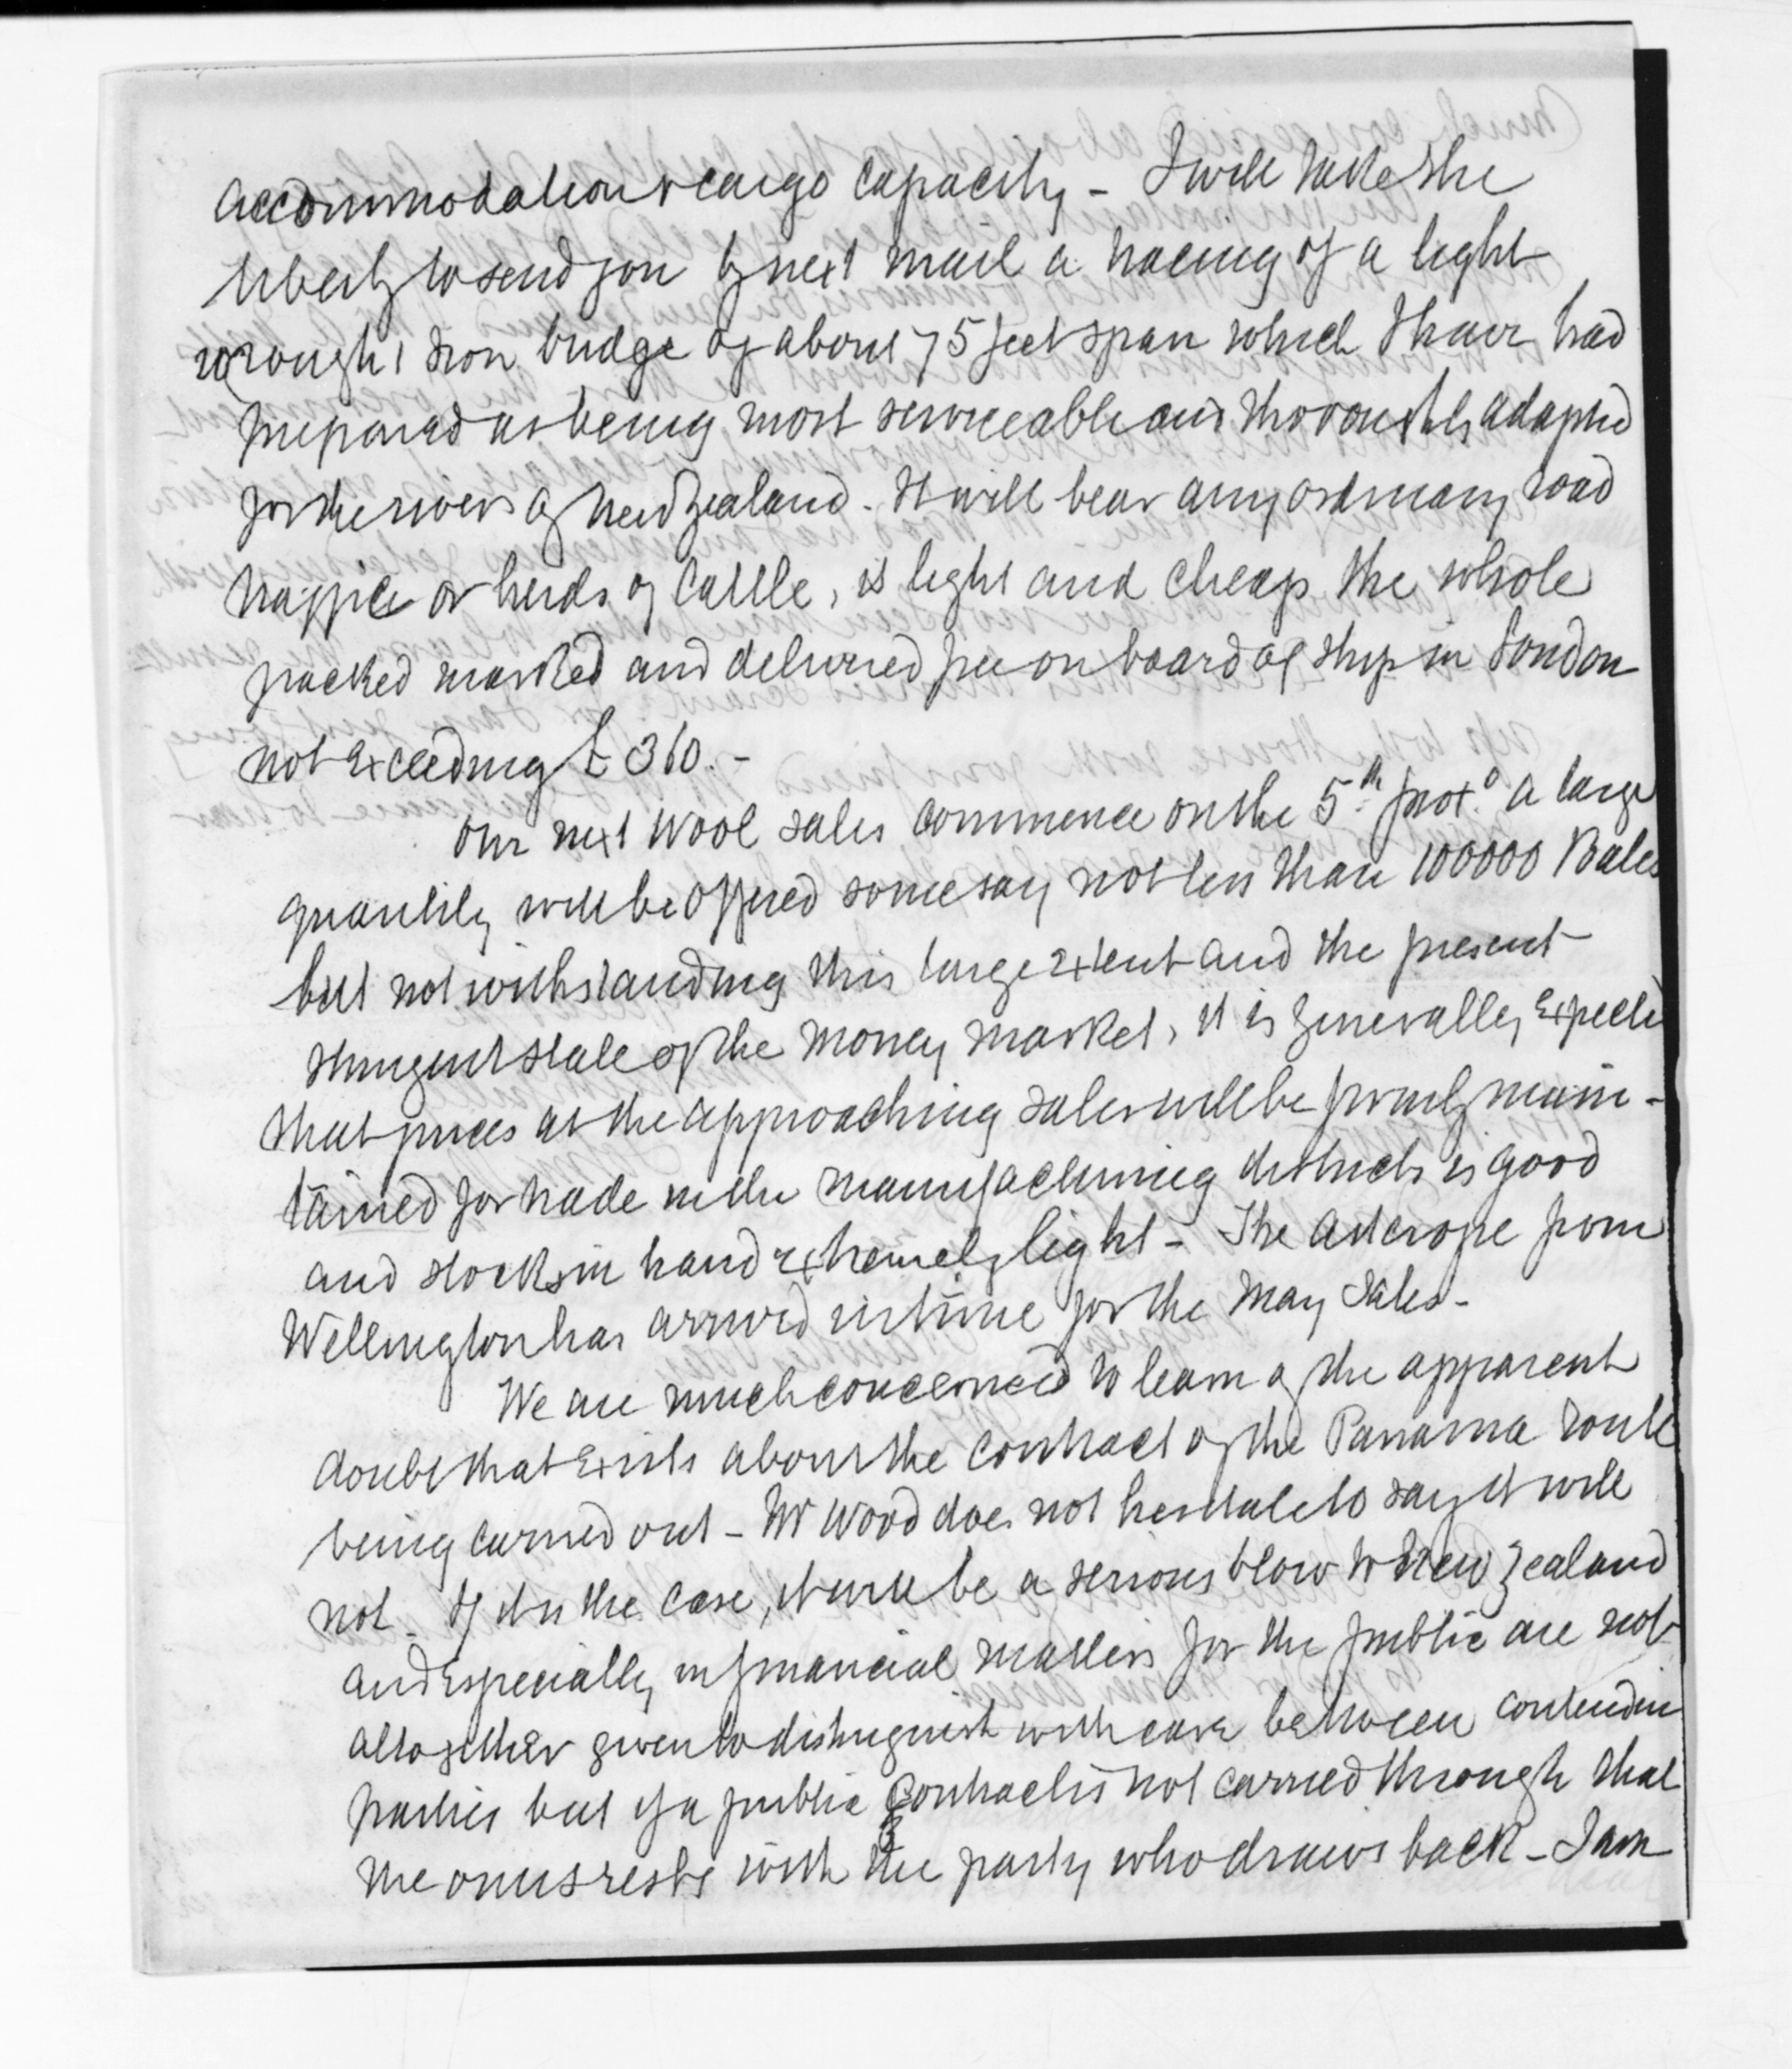 accommodation & cargo capacity - I will take the
liberty to send you by next mail a tracing of a light
wrought Iron bridge of about 75 feet span which I have had
prepared as being most serviceable and thoroughly adapted
for the rivers of New Zealand - It will bear any ordinary road
traffic or herds of Cattle, is light and cheap the whole
packed marked and delivered free on board of ship in London
not exceeding £360. -
Our next Wool sales commence on the 5th proxo a large
quantity will be offered some say not less than 100000 Bales
but not withstanding this large extent and the present
stringent state of the Money Market, it is generally expected
that prices at the approaching sales will be firmly main-
tained for trade in the manufacturing districts is good
and stocks in hand extremely light - The Asterope from
Wellington has arrived in time for the May Sales -
We are much concerned to learn of the apparent
doubt that exists about the contract of the Panama route
being carried out - Mr Wood does not hesitate to say it will
not - If it is the case, it will be a serious blow to New Zealand
and especially in financial matters for the public are not
altogether given to distinguish with care between contendin
parties but if a public Contract is not carried through that
the onus rests with the party who draws back - I am